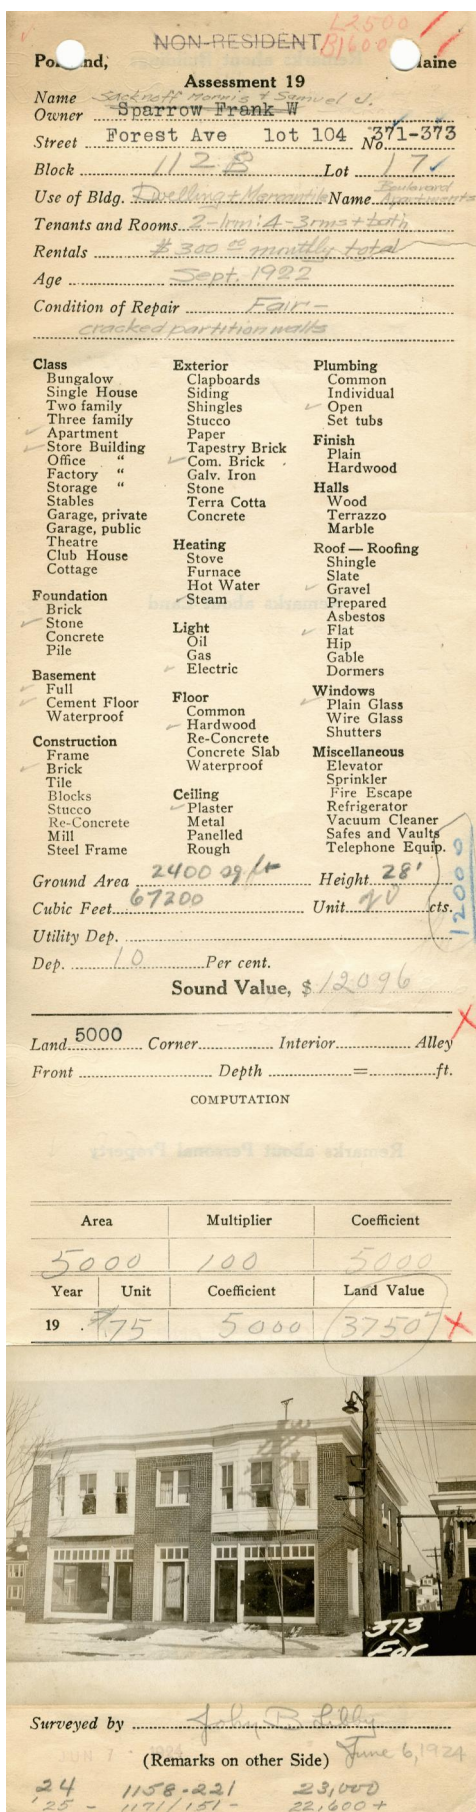 L2500
NON-RESIDENT
B1600
Portland, Maine
Assessment 19
Name Sacknoff Morris & Samuel J.
Owner Sparrow Frank W
Street Forest Ave lot 104 No. 371-373
Block 112 B Lot 17
Use of Bldg. Dwelling & Mercantile Name Boulevard Apartments
Tenants and Rooms 2-1rm; 4-3rms & bath
Rentals $300 00 monthly total
Age Sept. 1922
Condition of Repair Fair -
cracked partition walls
Class
Bungalow
Single House
Two family
Three family
Apartment
Store Building
Office "
Factory "
Storage "
Stables
Garage, private
Garage, public
Theatre
Club House
Cottage
Foundation
Brick
Stone
Concrete
Pile
Basement
Full
Cement Floor
Waterproof
Construction
Frame
Brick
Tile
Blocks
Stucco
Re-Concrete
Mill
Steel Frame
Exterior
Clapboards
Siding
Shingles
Stucco
Paper
Tapestry Brick
Com. Brick
Galv. Iron
Stone
Terra Cotta
Concrete
Heating
Stove
Furnace
Hot Water
Steam
Light
Oil
Gas
Electric
Floor
Common
Hardwood
Re-Concrete
Concrete Slab
Waterproof
Ceiling
Plaster
Metal
Panelled
Rough
Plumbing
Common
Individual
Open
Set tubs
Finish
Plain
Hardwood
Halls
Wood
Terrazzo
Marble
Roof — Roofing
Shingle
Slate
Gravel
Prepared
Asbestos
Flat
Hip
Gable
Dormers
Windows
Plain Glass
Wire Glass
Shutters
Miscellaneous
Elevator
Sprinkler
Fire Escape
Refrigerator
Vacuum Cleaner
Safes and Vaults
Telephone Equip.
12000
Ground Area 2400 sq ft Height 28'
Cubic Feet 67200 Unit 20 cts.
Utility Dep.
Dep. 10 Per cent.
Sound Value, $ 12096
Land 5000 Corner Interior Alley
Front Depth = ft.
COMPUTATION
Area Multiplier Coefficient
5000 100 5000
Year Unit Coefficient Land Value
19 .75 5000 3750
373
For
Surveyed by John B Libby
JUN 7 - 1924
(Remarks on other Side) June 6, 1924
24 1158-221 23,000
'25 - 1171/151 - 22,600 +